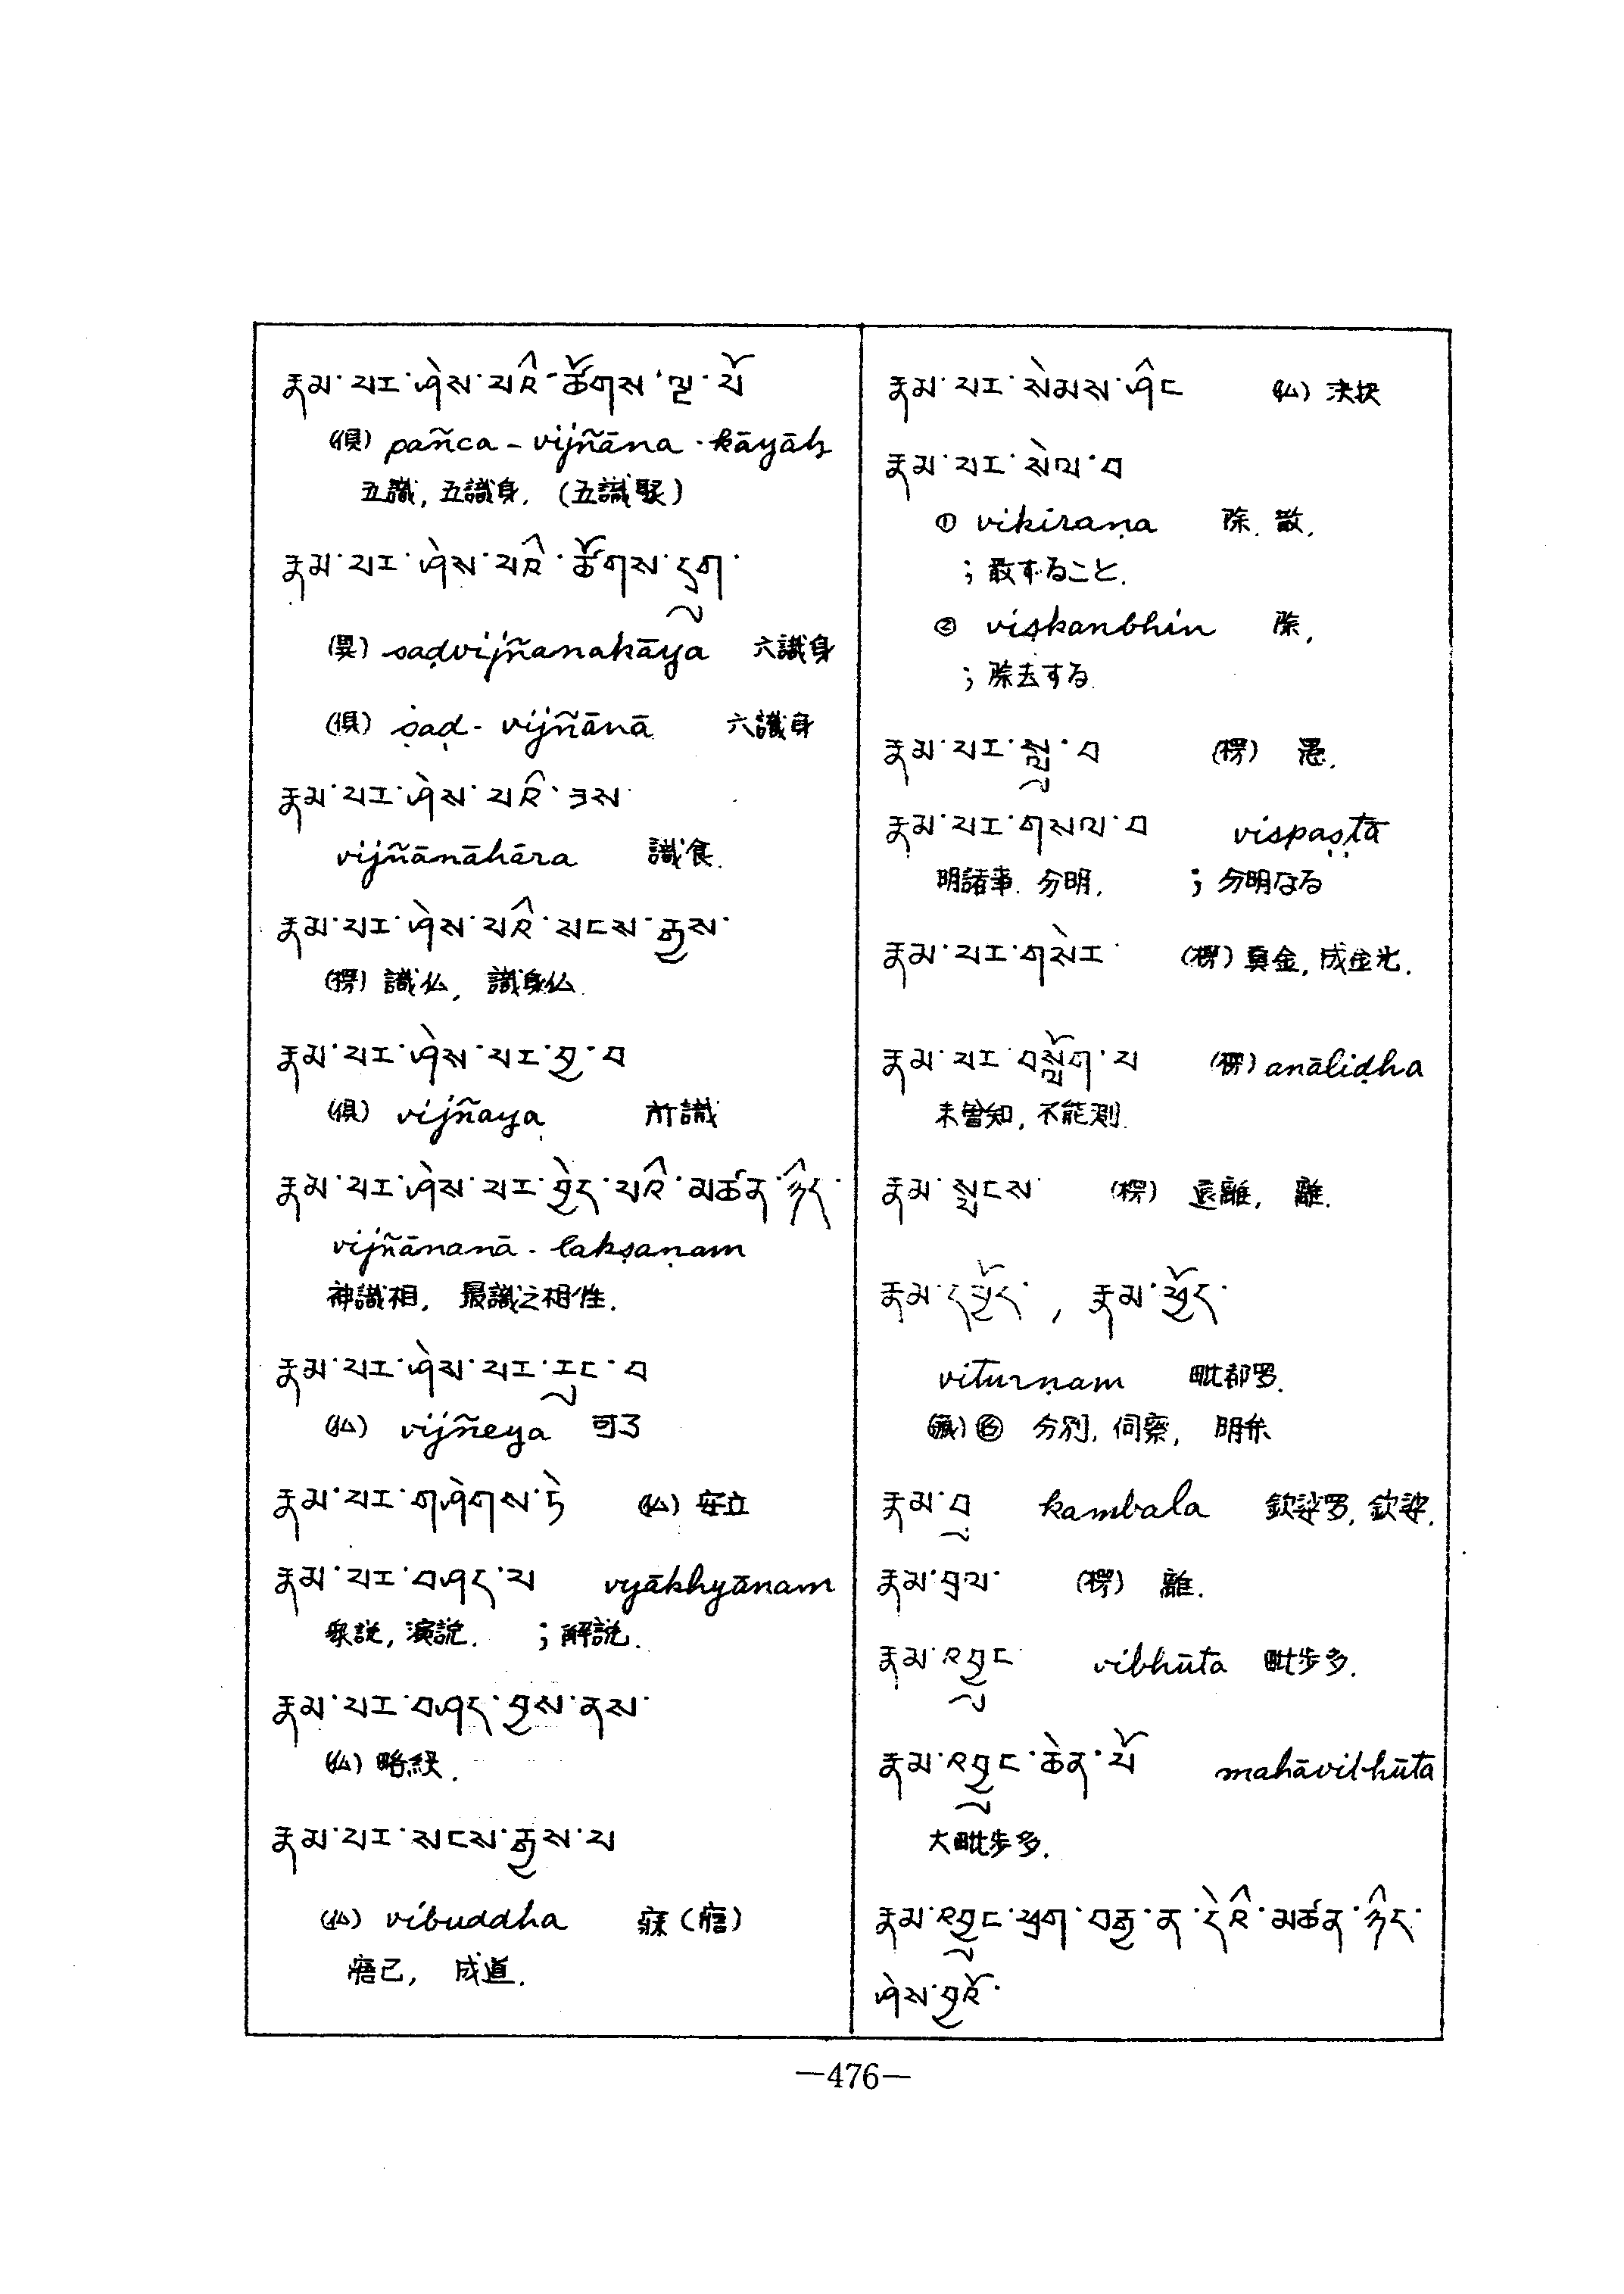 རྣམ་པར་ཤེས་པའི་ཚོགས་ལྔ་པོ
(倶) pañca - vijñāna - kāyāḥ
五識, 五識身. (五識聚)
རྣམ་པར་ཤེས་པའི་ཚོགས་དྲུག་
(異) saḍvijñanakāya 六識身
(倶) ṣaḍ - vijñānā 六識身
རྣམ་པར་ཤེས་པའི་ཟས་
vijñānāhāra 識食.
རྣམ་པར་ཤེས་པའི་སངས་རྒྱས་
(楞) 識仏, 識身仏.
རྣམ་པར་ཤེས་པར་བྱ་བ
(倶) vijñaya 所識
རྣམ་པར་ཤེས་པར་བྱེད་པའི་མཚན་ཉིད་
vijñānanā - lakṣaṇam
神識相, 最識之相性.
རྣམ་པར་ཤེས་པར་རུང་བ
(仏) vijñeya 可了
རྣམ་པར་གཤེགས་ཏེ (仏) 安立
རྣམ་པར་བཤད་པ vyākhyānam
衆説, 演説. ; 解説.
རྣམ་པར་བཤད་བྱས་ནས་
(仏) 略経.
རྣམ་པར་སངས་རྒྱས་པ
(仏) vibuddha 寐 (寤)
寤己, 成道.
རྣམ་པར་སེམས་ཤིང (仏) 決択
རྣམ་པར་སེལ་བ
① vikiraṇa 除. 散.
; 散ずること.
② viṣkanbhin 除,
; 除去する.
རྣམ་པར་སླུ་བ (楞) 愚.
རྣམ་པར་གསལ་བ vispaṣṭā
明諸事. 分明. ; 分明なる
རྣམ་པར་གསེར་ (楞) 真金, 成金光.
རྣམ་པར་བསློག་པ (楞) anālidha
未曽知, 不能測.
རྣམ་སྤངས་ (楞) 遠離, 離.
རྣམ་དཔྱོད་ , རྣམ་དཔྱོད་
viturṇam 毗都罗.
分別, 伺察, 明弁
རྣམ་བུ kambala 欽婆罗, 欽婆.
རྣམ་བྲལ་ (楞) 離.
རྣམ་འབྱུང vibhūta 毗步多.
རྣམ་འབྱུང་ཆེན་པོ mahāvibhūta
大毗步多.
རྣམ་འབྱུང་ཕྲག་བརྒྱ་ན་དེའི་མཚན་ཉིད་
ཤེས་བྱའོ་
—476—